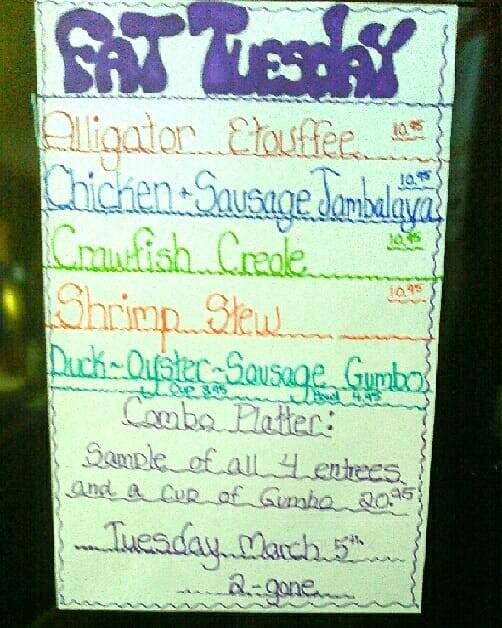 FAT TUESDAY
Alligator Etouffee 10.95
Chicken + Sausage Jambalaya 10.95
Crawfish Creole 10.95
Shrimp Stew 10.95
Duck~Oyster~Sausage Gumbo
Cup 3.95 Bowl 4.95
Combo Platter:
Sample of all 4 entrees
and a cup of Gumbo 20.95
Tuesday March 5th
2-gone